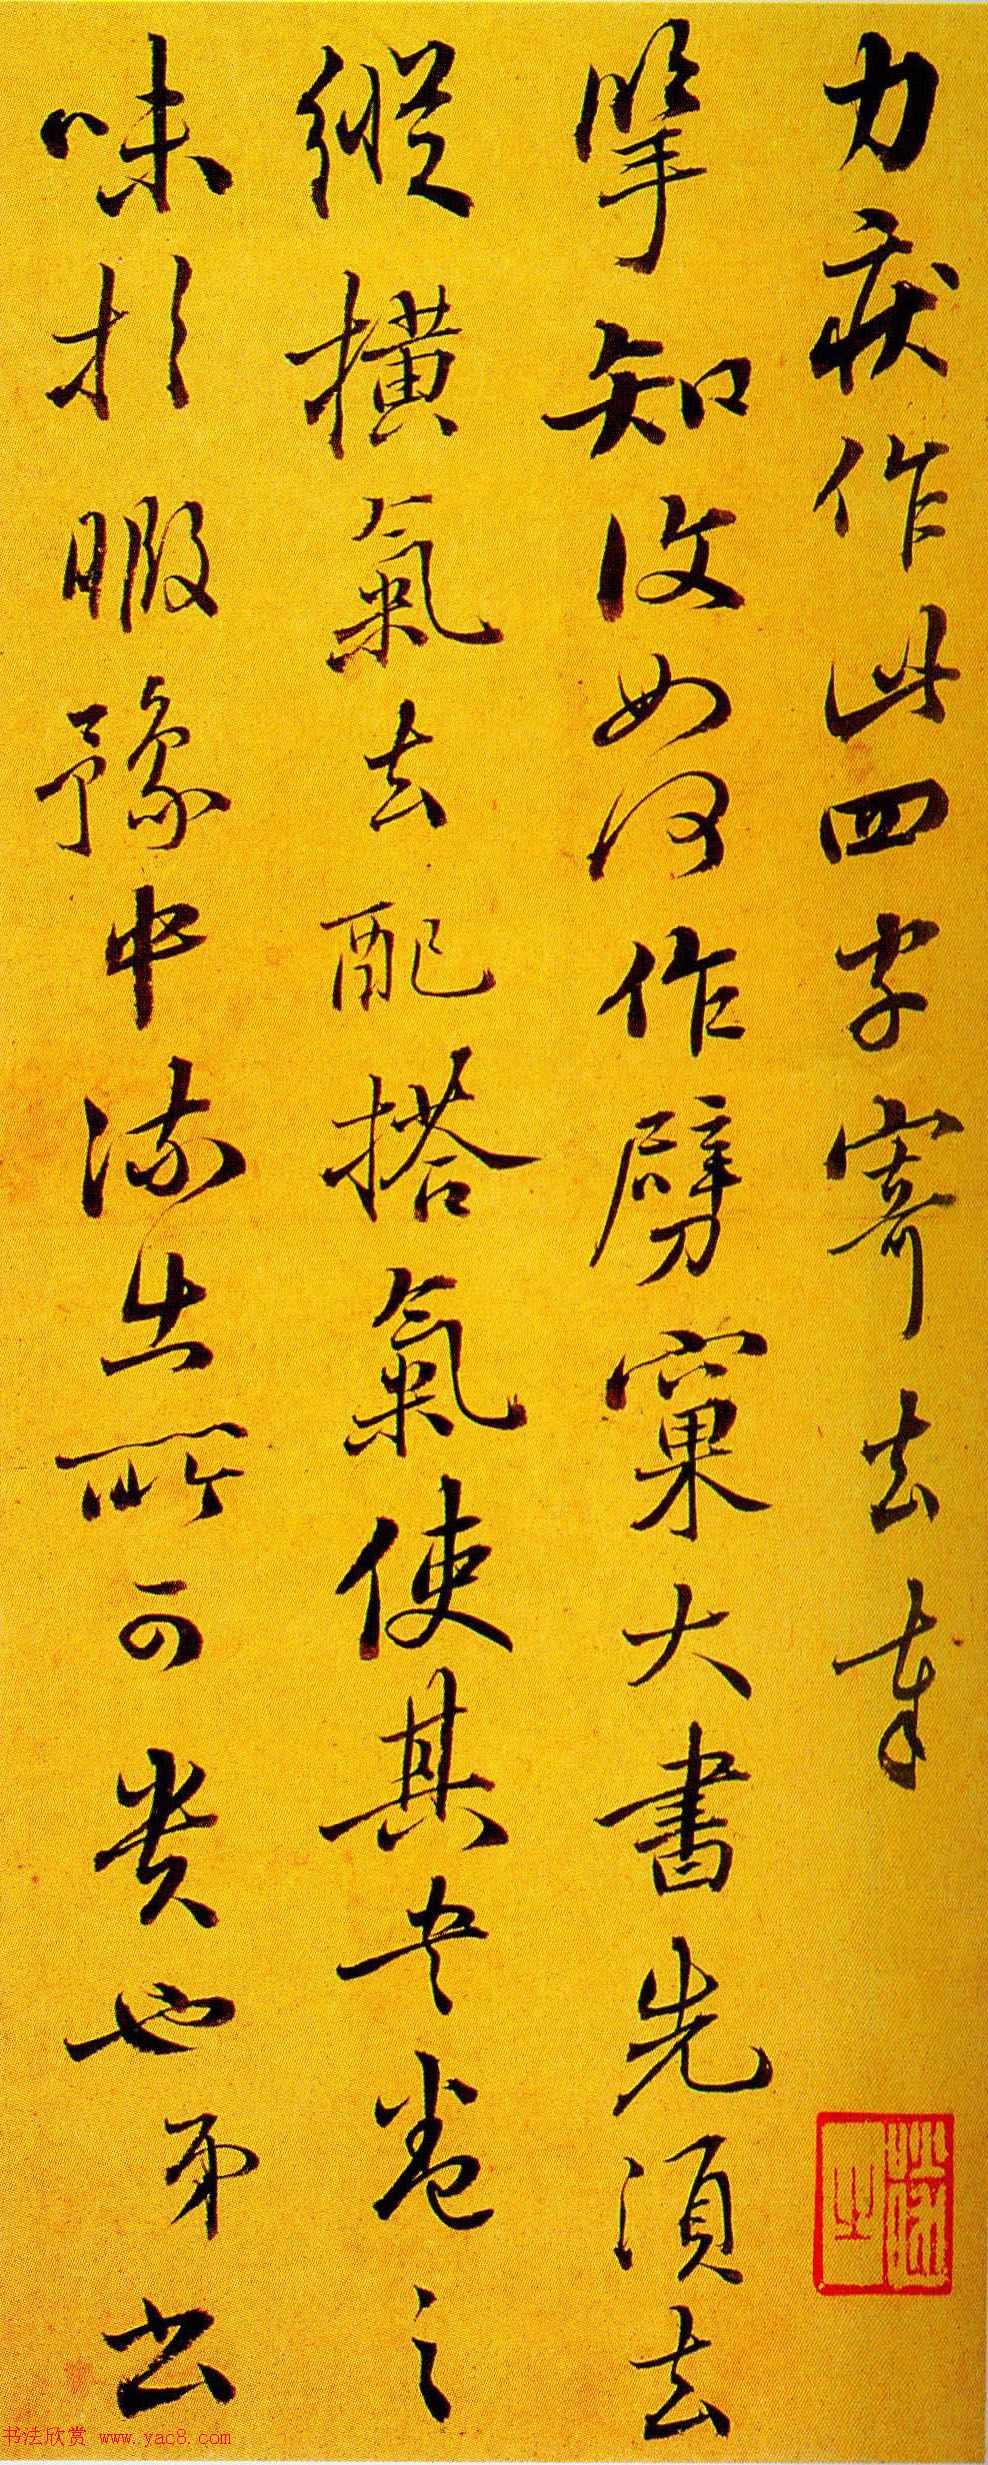 力疾作此四字寄去幸
知收如何作劈窠大書先須去
縱橫氣去配搭氣使其書卷之
味於暇豫中流出所可貴也弟書
书法欣赏 www.yac8.com